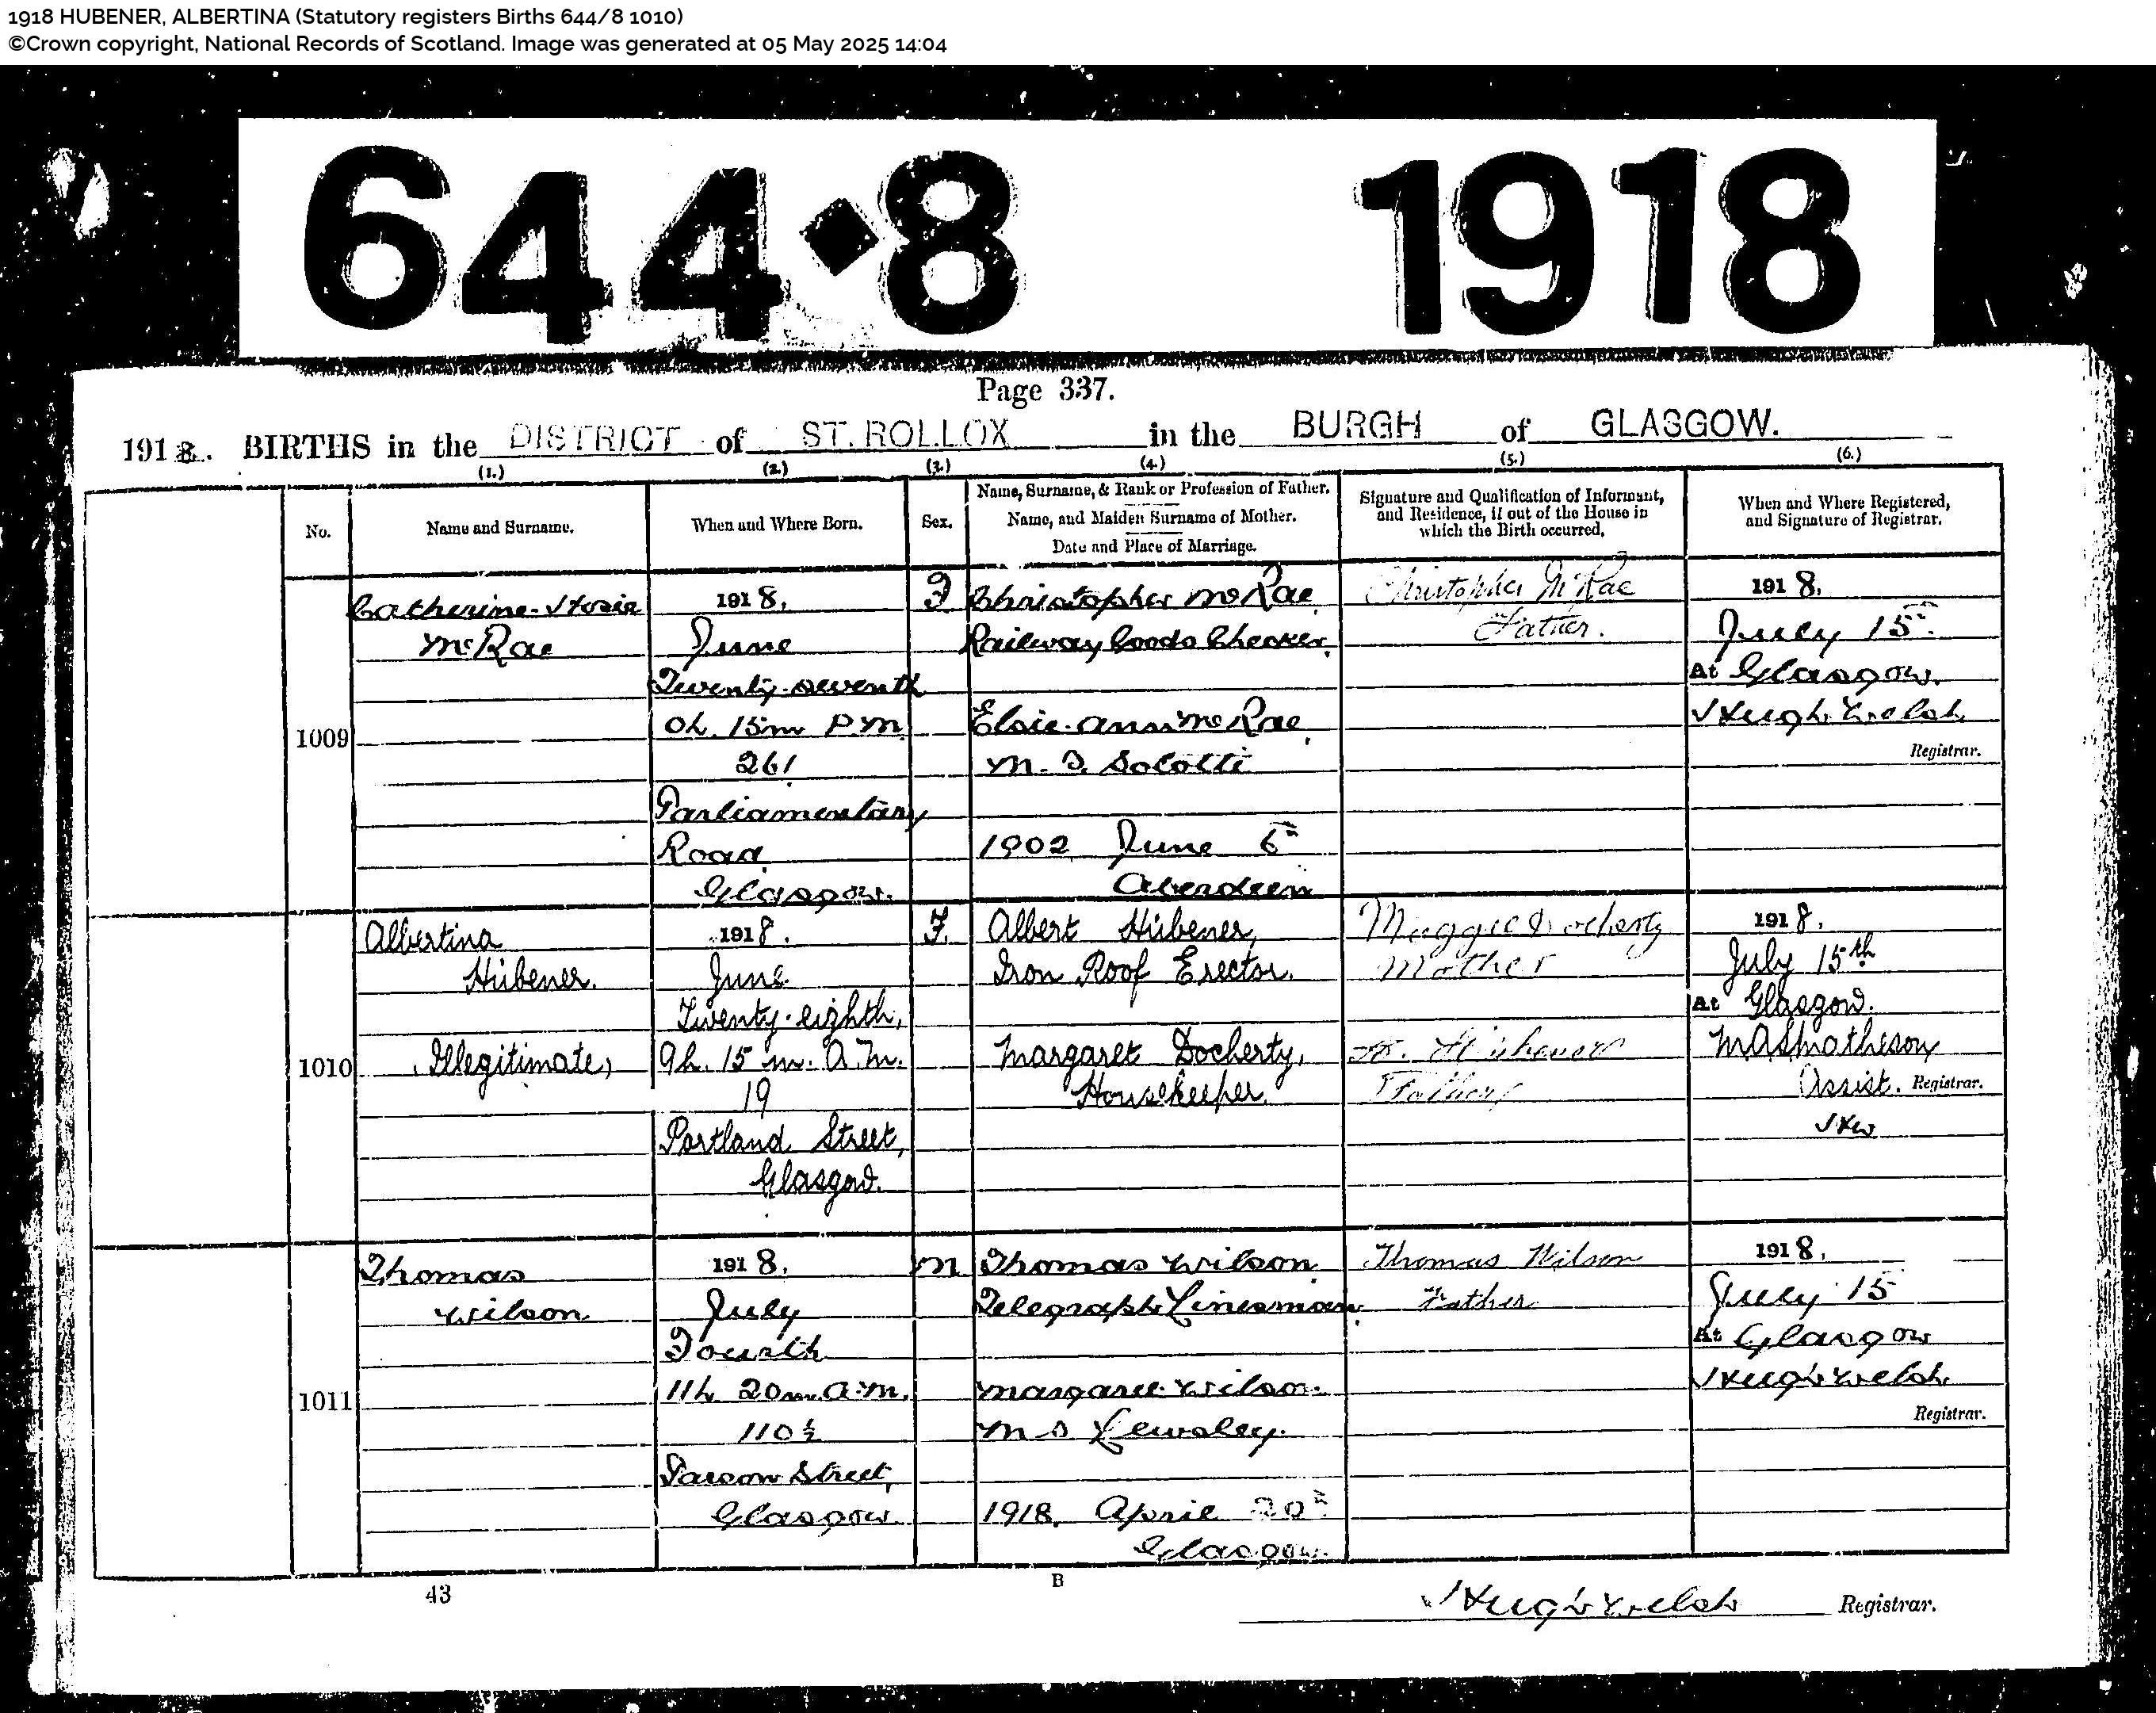 1918 HUBENER, ALBERTINA (Statutory registers Births 644/8 1010)
©Crown copyright, National Records of Scotland. Image was generated at 05 May 2025 14:04
644·8 1918
Page 337.
1918. BIRTHS in the DISTRICT of ST. ROLLOX in the BURGH of GLASGOW.
(1.) (2.) (3.) (4.) (5.) (6.)
No.
Name and Surname.
When and Where Born.
Sex.
Name, Surname, & Rank or Profession of Father.
Name, and Maiden Surname of Mother.
Date and Place of Marriage.
Signature and Qualification of Informant,
and Residence, if out of the House in
which the Birth occurred,
When and Where Registered,
and Signature of Registrar.
1009
Catherine
McRae
1918,
June
Twenty-seventh
0h. 15m P.M.
261
Parliamentary
Road
Glasgow.
F
Christopher McRae
Railway Goods Checker
Elsie Ann McRae
M.S.
1902 June 6th
Aberdeen
Christopher McRae
Father.
1918,
July 15th
At Glasgow.
Hugh Welsh
Registrar.
1010
Albertina
Hübener.
(Illegitimate)
1918.
June
Twenty-eighth,
9h. 15 m. A.M.
19
Portland Street,
Glasgow.
F.
Albert Hübener,
Iron Roof Erector.
Margaret Docherty,
Housekeeper.
Maggie Docherty
Mother
Father
1918.
July 15th
At Glasgow.
M A S Matheson
Assist. Registrar.
HW
1011
Thomas
Wilson
1918,
July
Fourth
11h 20m A.M.
110½
Parson Street,
Glasgow
M
Thomas Wilson
Telegraph Linesman
Margaret Wilson
M S
1918. April 20th
Glasgow.
Thomas Wilson
Father
1918,
July 15
At Glasgow
Hugh Welsh
Registrar.
43 B
Hugh Welsh Registrar.